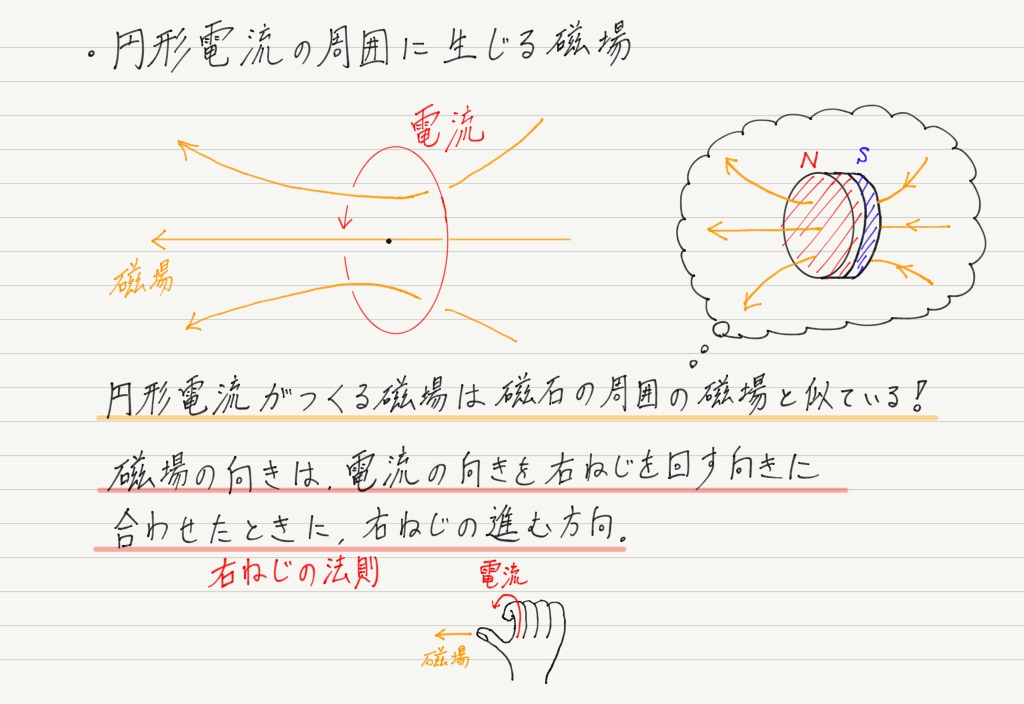 ・円形電流の周囲に生じる磁場
電流
N S
磁場
円形電流がつくる磁場は磁石の周囲の磁場と似ている!
磁場の向きは、電流の向きを右ねじを回す向きに
合わせたときに、右ねじの進む方向。
右ねじの法則
電流
磁場